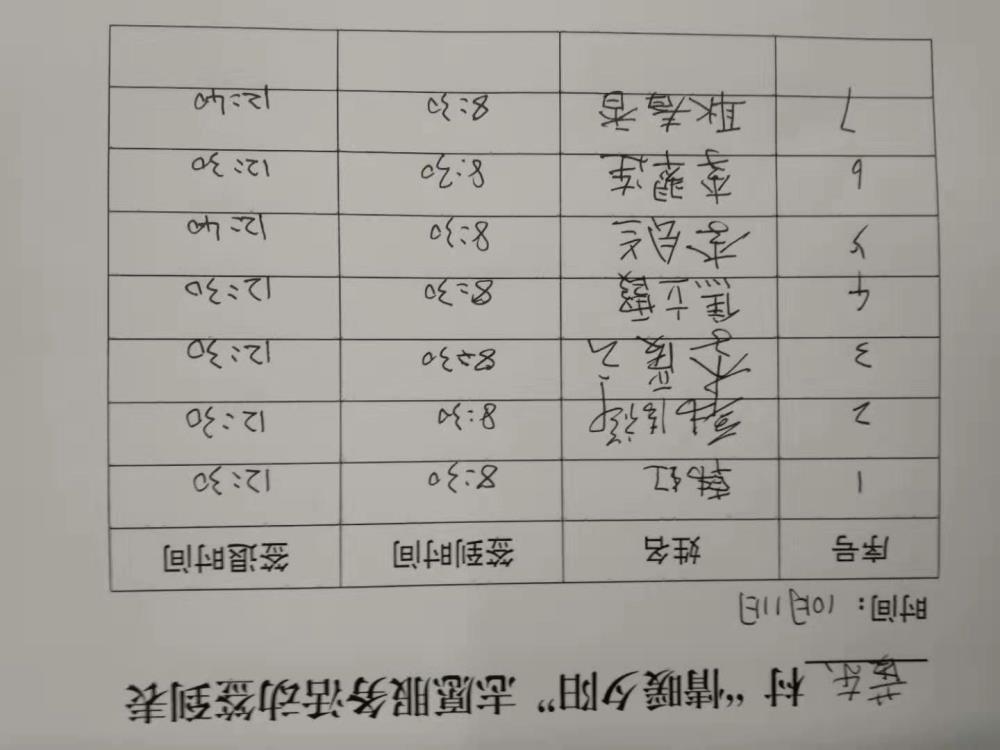 村 “情暖夕阳” 志愿服务活动签到表
时间：10月11日
序号 姓名 签到时间 签退时间
1 韩红 8:30 12:30
2 8:30 12:30
3 8:30 12:30
4 焦立霞 8:30 12:30
5 李自兰 8:30 12:40
6 李翠连 8:30 12:30
7 耿春香 8:30 12:40